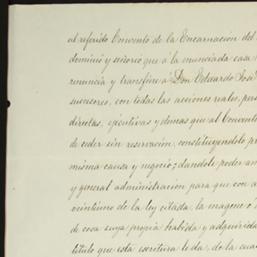 al referido Convento de la Encarnacion del
dominio y señoreo que á la enunciada casa
renuncia y transfiere á Don Eduardo José
sucesores, con todas las acciones reales, pers
directas, ejecutivas y demas que al Convento
de ceder sin reservacion, constituyendolo pr
misma causa y negocio; dandole poder am
y general administracion para que con a
veintiuno de la ley citada, la magene ó
de cosa suya propia habida y adquirida
titulo que esta escritura le da, de la cua